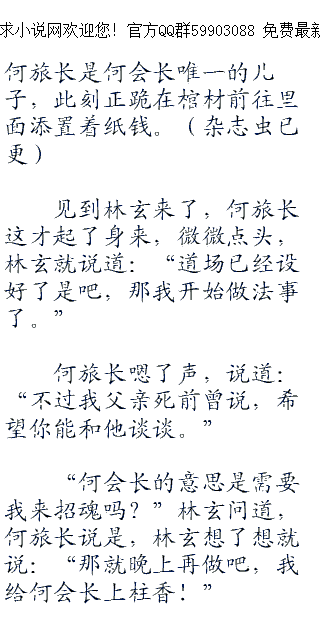 求小说网欢迎您！官方QQ群59903088 免费最新
何旅长是何会长唯一的儿
子，此刻正跪在棺材前往里
面添置着纸钱。（杂志虫已
更）
见到林玄来了，何旅长
这才起了身来，微微点头，
林玄就说道：“道场已经设
好了是吧，那我开始做法事
了。”
何旅长嗯了声，说道：
“不过我父亲死前曾说，希
望你能和他谈谈。”
“何会长的意思是需要
我来招魂吗？”林玄问道，
何旅长说是，林玄想了想就
说：“那就晚上再做吧，我
给何会长上柱香！”